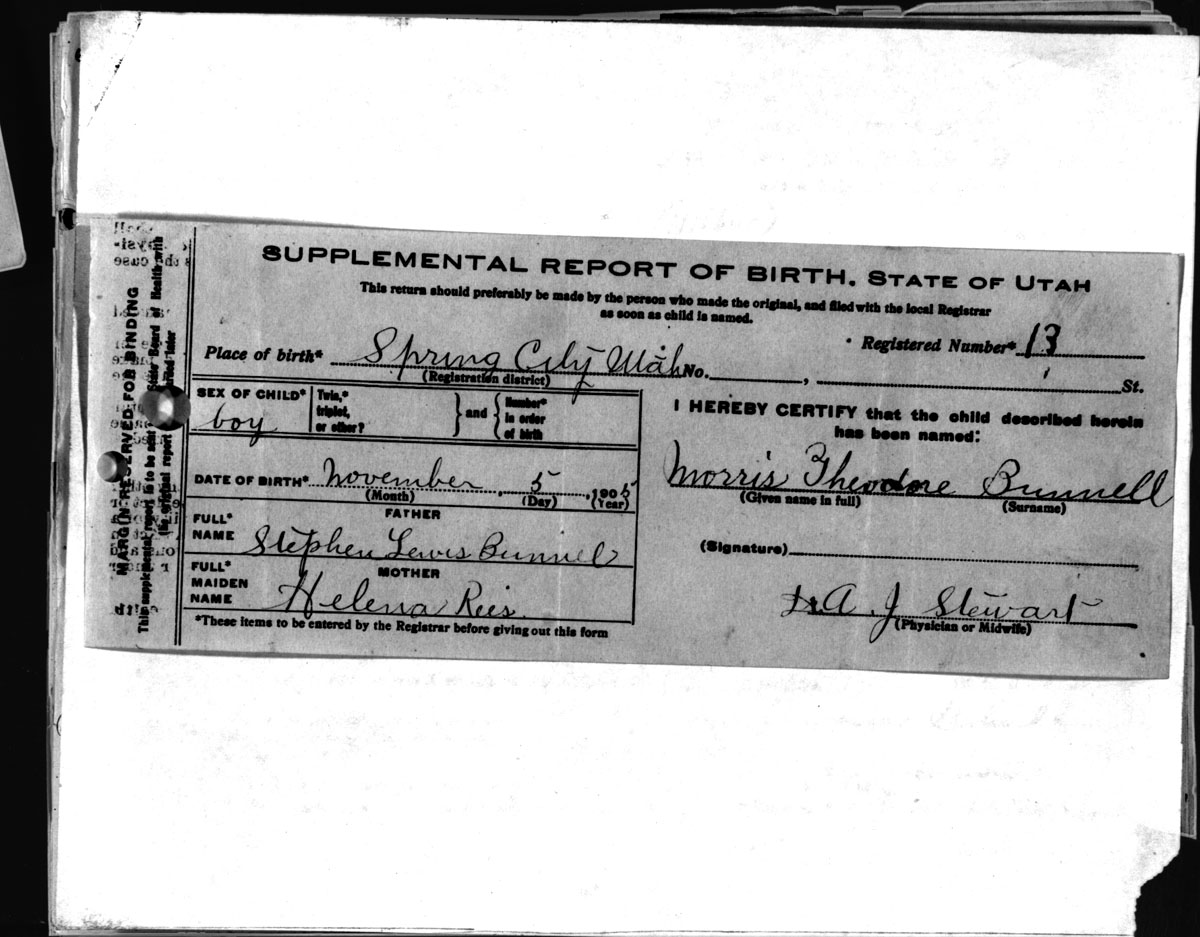 SUPPLEMENTAL REPORT OF BIRTH. STATE OF UTAH
This return should preferably be made by the person who made the original, and filed with the local Registrar
as soon as child is named.
Registered Number* 13
Place of birth* Spring City Utah No. , St.
(Registration district)
SEX OF CHILD* boy
Twin,* triplet, or other? } and { Number* in order of birth
DATE OF BIRTH* November , 5 , 1905
(Month) (Day) (Year)
FATHER
FULL* NAME Stephen Lewis Bunnel
MOTHER
FULL* MAIDEN NAME Helena Rees.
*These items to be entered by the Registrar before giving out this form
I HEREBY CERTIFY that the child described herein
has been named:
Morris Theodore Bunnell
(Given name in full) (Surname)
(Signature)
Dr A. J Stewart
(Physician or Midwife)
MARGIN RESERVED FOR BINDING
This supplemental report is to be sent Board of Health with
the original report